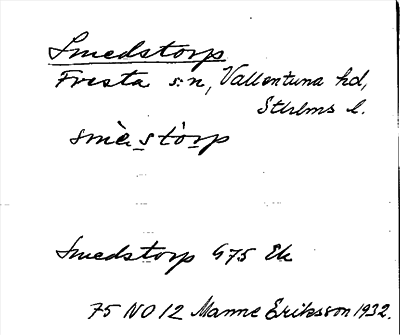 Smedstorp
Fresta s:n, Vallentuna hd,
Sthlms l.
smèstòrp
Smedstorp G75 Ek
75 NO 12 Manne Eriksson 1932.